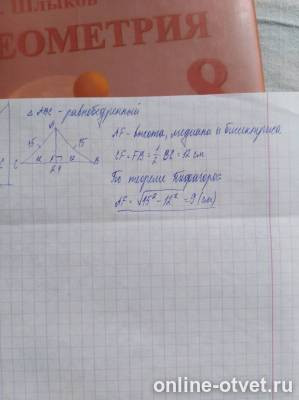 Шлыков
ГЕОМЕТРИЯ
8
Δ ABC - равнобедренный
AF - высота, медиана и биссектриса
CF = FB = 1/2 BC = 12 см
По теореме Пифагора:
AF = √15² - 12² = 9 (см)
15
15
12
F
12
C
B
24
online-otvet.ru